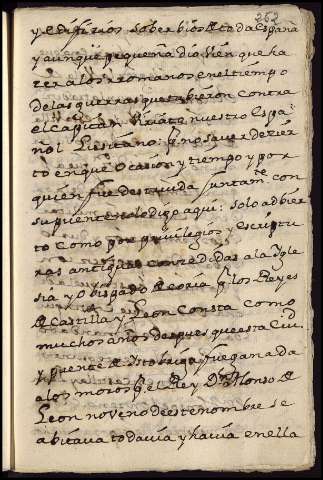 262
y edifiçios soberbios de toda España
y aunque pequeña dio bien que ha
zer a los rromanos en el tiempo
de las guerras que tubieron contra
el capitan Viriate nuestro Espa
ñol Lusitano: q no saver de zier
to en que ocasion y tiempo y por
quien fue destruyda juntamte con
su puente no lo digo aqui: solo adbier
to como por privilegios y escriptu
ras antiguas conzedidas a la Ygle
sia y Obispado de Coria q los Reyes
de Castilla y Leon Consta como
muchos años despues que esta Ciud
y puente de fue ganada
a los moros q el Rey Dn Alonso de
Leon noveno de este nombre se
abitava todavia y havia en ella